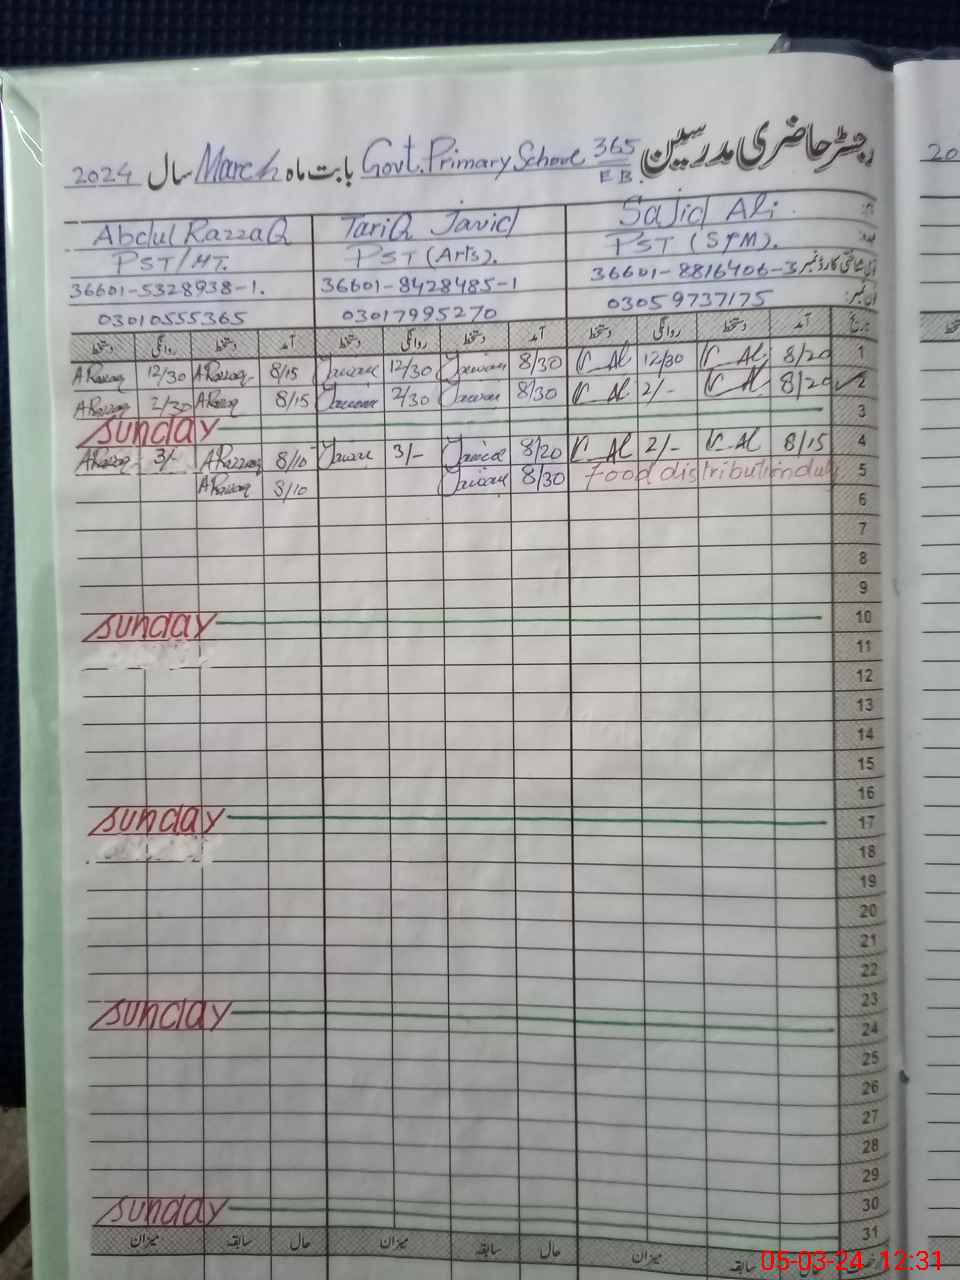 رجسٹر حاضری مدرسین Govt. Primary School 365 E B. بابت ماہ March سال 2024
نام: Sajid Ali TariQ Javid Abdul RazzaQ
عہدہ: PST (SfM). PST (Arts). PST/HT.
36601-8816406-3 36601-8428485-1 36601-5328938-1.
03059737175 03017995270 03010555365
تاریخ آمد دستخط روانگی دستخط آمد دستخط روانگی دستخط آمد دستخط روانگی دستخط
1 8/20 12/30 8/30 12/30 8/15 A Razzaq 12/30 A Razzaq
2 8/20 2/- 8/30 2/30 8/15 A Razzaq 2/30 A Razzaq
3 Sunday
4 8/15 2/- 8/20 3/- 8/10 A Razzaq 3/- A Razzaq
5 Food distribution duty 8/30 8/10 A Razzaq
6
7
8
9
10 Sunday
11
12
13
14
15
16
17 Sunday
18
19
20
21
22
23
24 Sunday
25
26
27
28
29
30
31 Sunday
میزان سابقہ حال میزان سابقہ حال میزان سابقہ
05-03-24 12:31
20